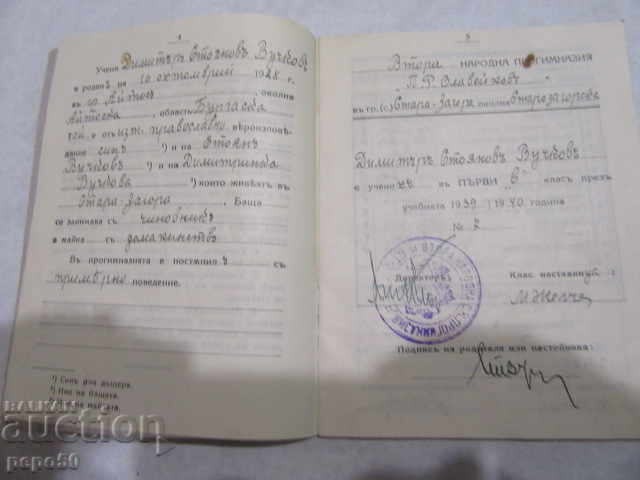 4
Ученикъ Димитъръ Стояновъ Вучковъ
е роденъ на 10 октомврий 1926 г.
въ гр. Айтосъ, околия
Айтоска, областъ Бургаска
той е отъ изт. православно вѣроизпове-
дание синъ ¹) и на Стоянъ
Вучковъ ²) и на Димитринка
Вучкова ³) които живѣятъ въ
Стара-Загора. Баща
се занимава съ чиновникъ
и майка съ домакинство
Въ прогимназията е постъпилъ съ
примѣрно поведение.
¹) Синъ или дъщеря.
²) Име на бащата.
³) Име на майката.
5
Втора НАРОДНА ПРОГИМНАЗИЯ
„П. Р. Славейковъ"
въ гр. (с) Стара-Загора околия Старозагорска
Димитъръ Стояновъ Вучковъ
е ученикъ въ ПЪРВИ „б" класъ презъ
учебната 1939/1940 година
№ 2
Директоръ:
Клас. наставникъ
Подпись на родителя или настойника:
BALKAN
auction
pepo50